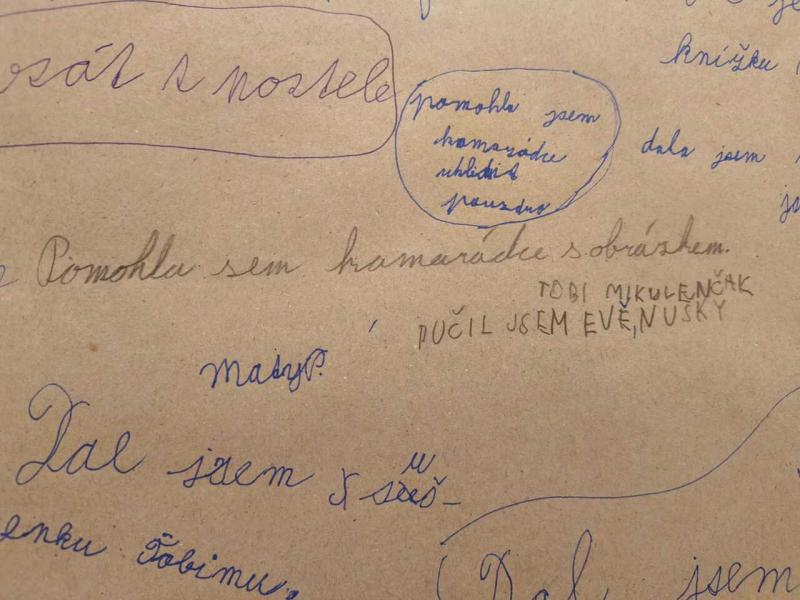 z postele
knížku
pomohla jsem
kamarádce
uklidit
pouzdro
dala jsem
Pomohla sem kamarádce s obrázkem.
TOBI MIKULENČAK
PUČIL JSEM EVĚ, NUŠKY
MatyP.
Dal jsem
enku Tobimu.
Dal jsem